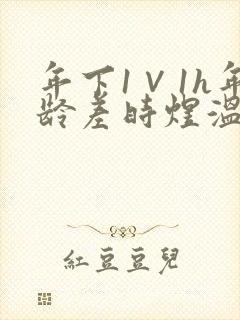 年下1V1h年
龄差时煜温
紅豆豆兒